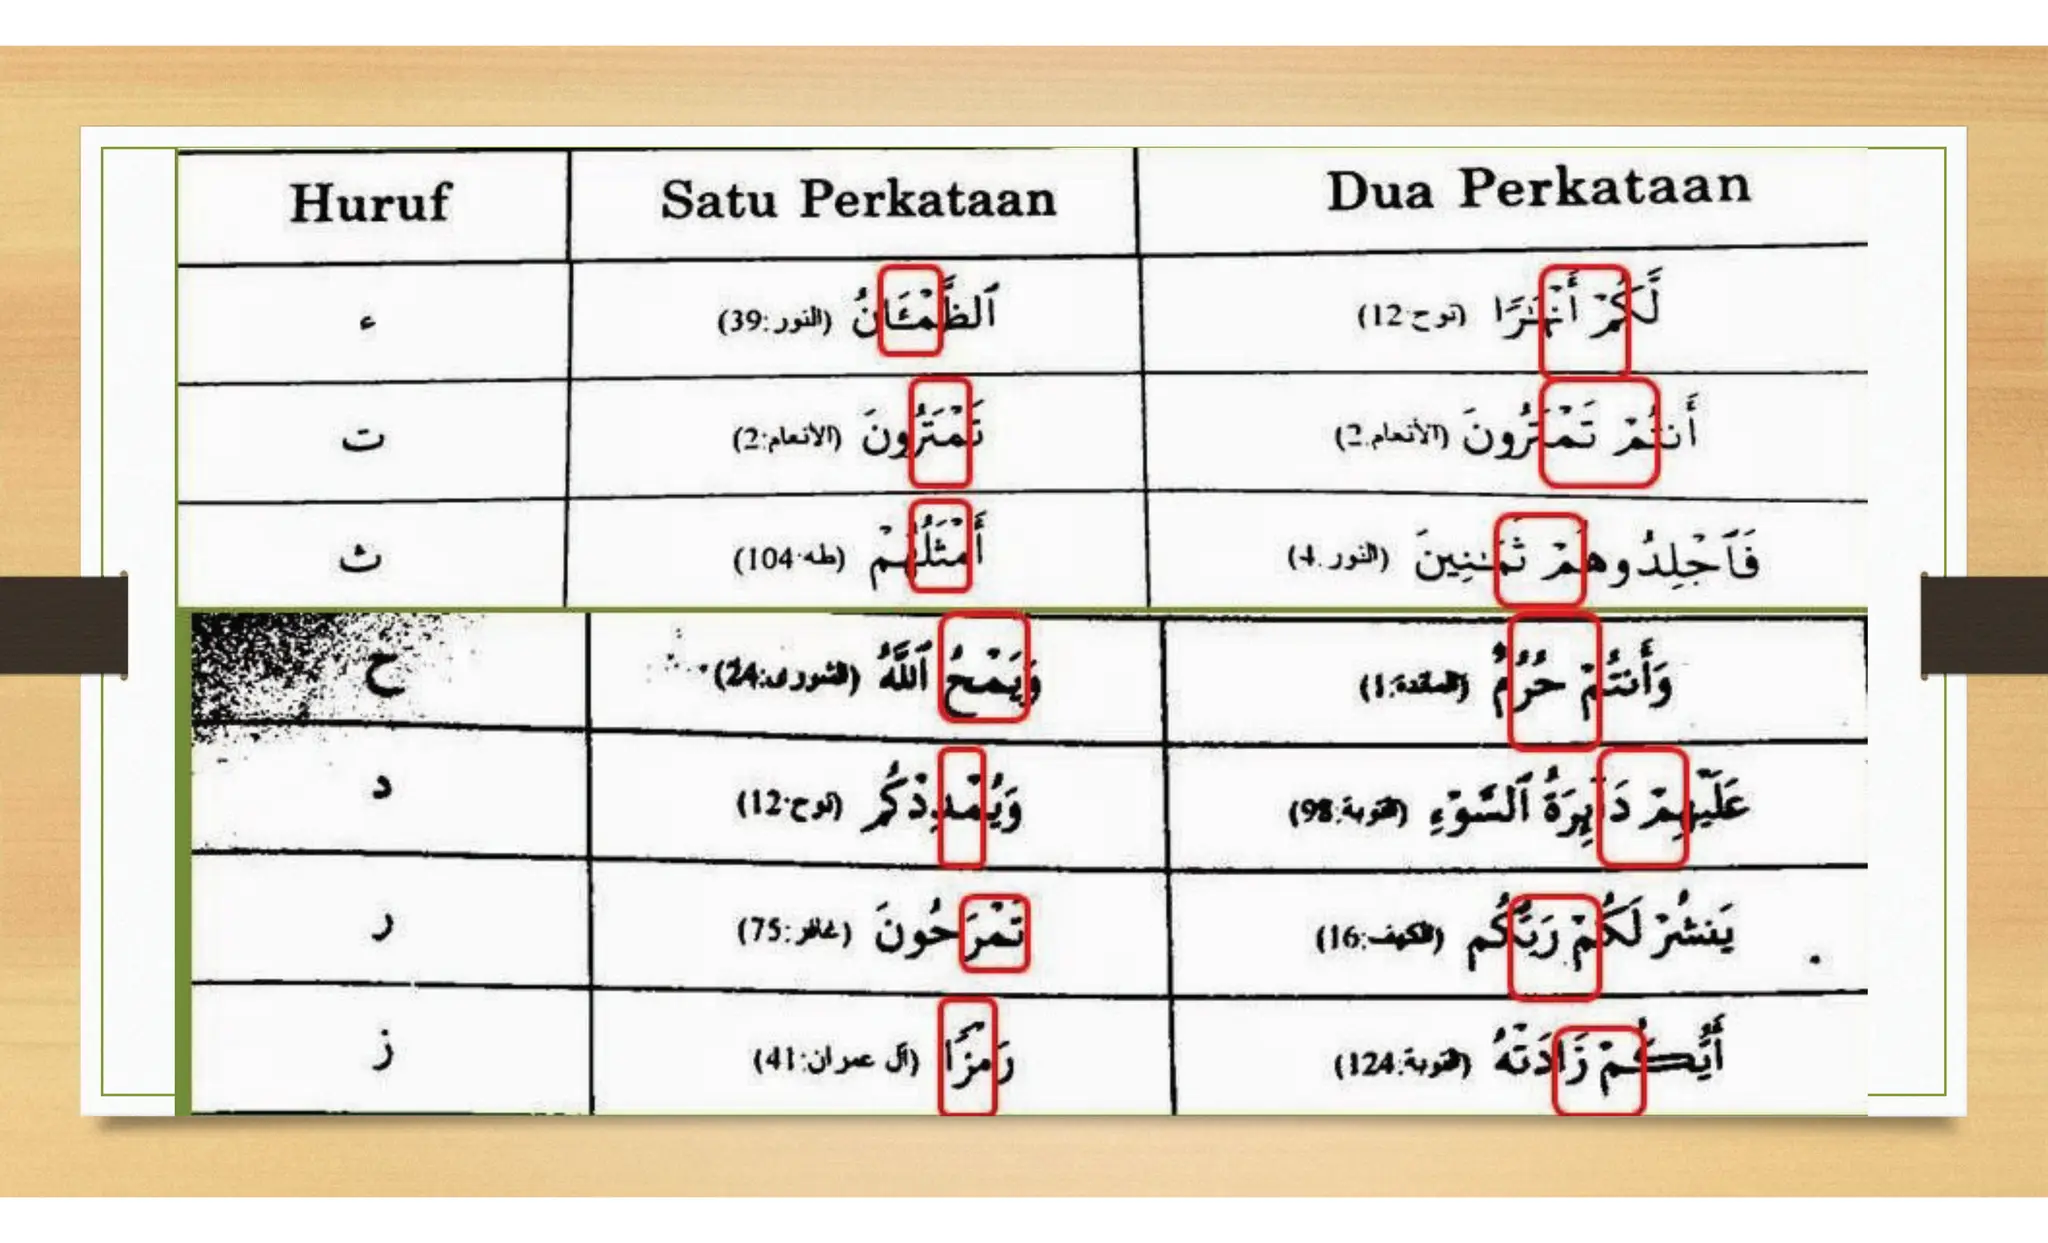 Huruf Satu Perkataan Dua Perkataan
ء ٱلظَّمْـَٔانُ (النور:39) لَّكُمْ أَنْهَٰرًا (نوح:12)
ت تَمْتَرُونَ (الأنعام:2) أَنتُمْ تَمْتَرُونَ (الأنعام:2)
ث أَمْثَلُهُمْ (طه:104) فَٱجْلِدُوهُمْ ثَمَٰنِينَ (النور:4)
ح وَيَمْحُ ٱللَّهُ (الشورى:24) وَأَنتُمْ حُرُمٌ (المائدة:1)
د وَيُمْدِدْكُمْ (نوح:12) عَلَيْهِمْ دَآئِرَةُ ٱلسَّوْءِ (التوبة:98)
ر تَمْرَحُونَ (غافر:75) يَنشُرْ لَكُمْ رَبُّكُم (الكهف:16)
ز رَمْزًا (آل عمران:41) أَيُّكُمْ زَادَتْهُ (التوبة:124)